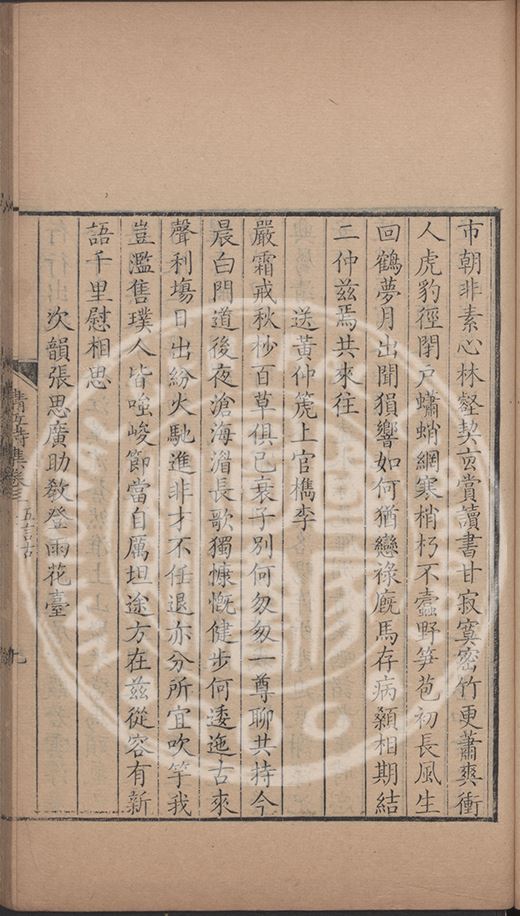 市朝非素心林壑契玄賞讀書甘寂寞密竹更蕭爽衝
人虎豹徑閉戸蠨蛸網寒梢朽不蠹野笋苞初長風生
回鶴夢月出聞猿響如何猶戀祿廐馬存病顙相期結
二仲兹焉共來往
送黃仲箎上官檇李
嚴霜戒秋杪百草俱已衰子別何匆匆一尊聊共持今
晨白門道後夜滄海湄長歌獨慷慨健步何逶迤古來
聲利塲日出紛火馳進非才不任退亦分所宜吹竽我
豈濫售璞人皆嗤峻節當自厲坦途方在兹從容有新
語千里慰相思
次韻張思廣助敎登雨花臺
詩集卷三
五言古
九